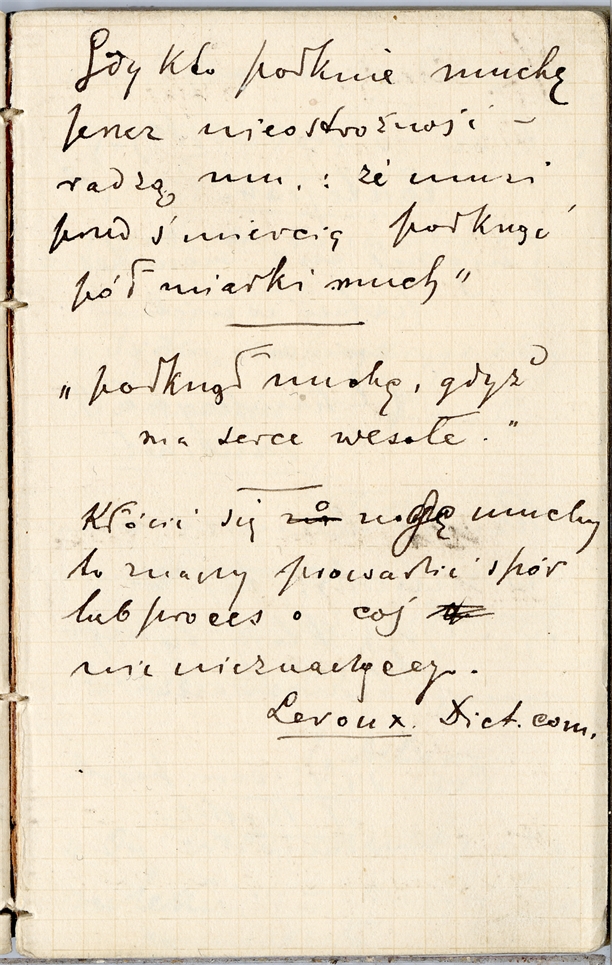 Gdy kto połknie muchę
przez nieostrożność –
radzą mu, : że musi
przed śmiercią połknąć
pół miarki much"
„połknął muchę, gdyż
ma serce wesołe."
Kłócić się o nogę muchy
to znaczy prowadzić spór
lub proces o coś
nic nieznaczącego.
Leroux. Dict. com.